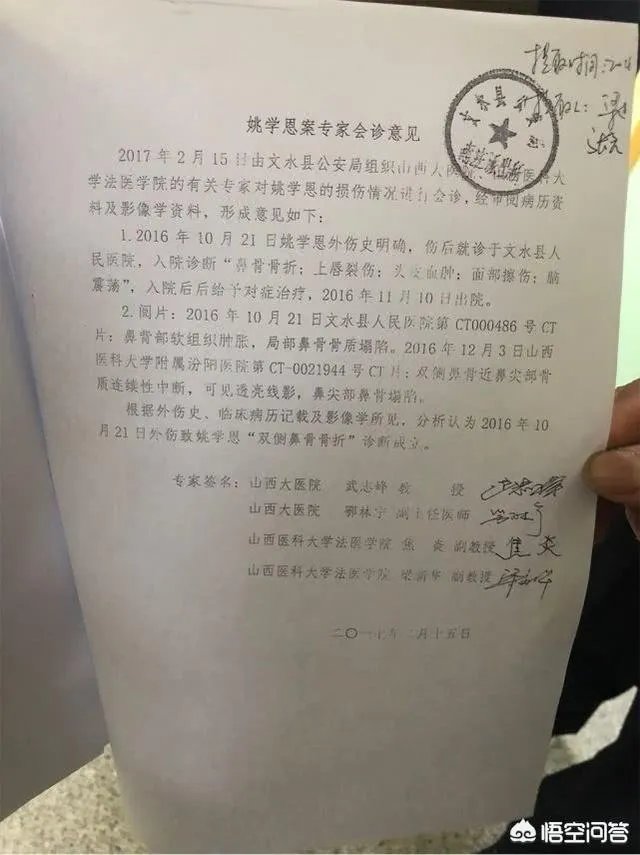 提取时间:
提取人:
姚学恩案专家会诊意见
2017年2月15日由文水县公安局组织山西大医院、山西医科大
学法医学院的有关专家对姚学恩的损伤情况进行会诊,经审阅病历资
料及影像学资料,形成意见如下:
1.2016年10月21日姚学恩外伤史明确,伤后就诊于文水县人
民医院,入院诊断“鼻骨骨折;上唇裂伤;头皮血肿;面部擦伤;脑
震荡”,入院后后给予对症治疗,2016年11月10日出院。
2.阅片:2016年10月21日文水县人民医院第CT000486号CT
片:鼻背部软组织肿胀,局部鼻骨骨质塌陷。2016年12月3日山西
医科大学附属汾阳医院第CT-0021944号CT片:双侧鼻骨近鼻尖部骨
质连续性中断,可见透亮线影,鼻尖部鼻骨塌陷。
根据外伤史、临床病历记载及影像学所见,分析认为2016年10
月21日外伤致姚学恩“双侧鼻骨骨折”诊断成立。
专家签名:山西大医院 武志峰 教 授
山西大医院 郭林宁 副主任医师
山西医科大学法医学院 焦 炎 副教授 焦炎
山西医科大学法医学院 梁新华 副教授 梁新华
二〇一七年二月十五日
悟空问答